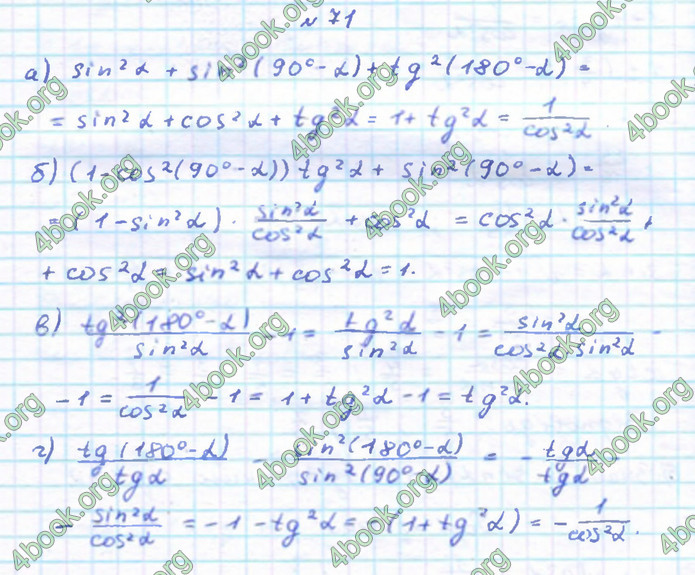 № 71
а) sin²α + sin²(90°-α) + tg²(180°-α) =
= sin²α + cos²α + tg²α = 1 + tg²α = 1/cos²α.
б) (1-cos²(90°-α)) tg²α + sin²(90°-α) =
= (1-sin²α) · sin²α/cos²α + cos²α = cos²α · sin²α/cos²α +
+ cos²α = sin²α + cos²α = 1.
в) tg²(180°-α)/sin²α - 1 = tg²α/sin²α - 1 = sin²α/cos²α·sin²α -
- 1 = 1/cos²α - 1 = 1 + tg²α - 1 = tg²α.
г) tg(180°-α)/tgα - sin²(180°-α)/sin²(90°-α) = - tgα/tgα
- sin²α/cos²α = -1 - tg²α = -(1 + tg²α) = - 1/cos²α.
4book.org